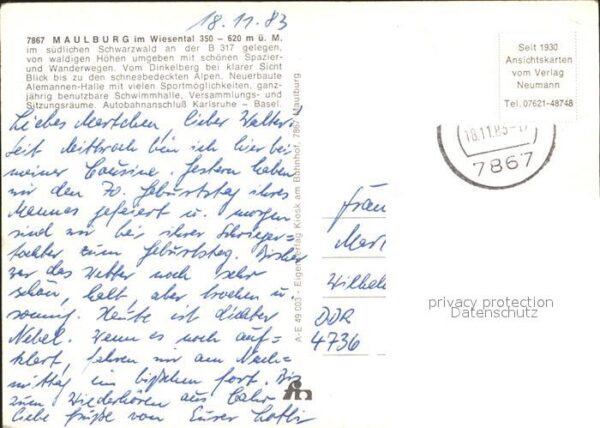 18.11.83
7867 MAULBURG im Wiesental 350 – 620 m ü. M.
im südlichen Schwarzwald an der B 317 gelegen,
von waldigen Höhen umgeben mit schönen Spazier-
und Wanderwegen. Vom Dinkelberg bei klarer Sicht
Blick bis zu den schneebedeckten Alpen. Neuerbaute
Alemannen-Halle mit vielen Sportmöglichkeiten, ganz-
jährig benutzbare Schwimmhalle, Versammlungs- und
Sitzungsräume. Autobahnanschluß Karlsruhe – Basel.
Liebes Mertchen, lieber Walter.
Seit Mittwoch bin ich hier bei
meiner Cousine. Gestern haben
wir den 70. Geburtstag ihres
Mannes gefeiert u. morgen
sind wir bei ihrer Schwieger=
tochter zum Geburtstag. Bisher
war das Wetter noch sehr
schön, kalt, aber trocken u.
sonnig. Heute ist dichter
Nebel. Wenn es noch auf=
klart, fahren wir am Nach=
mittag ein bißchen fort. Bis
zum Wiederhören aus Lahr
liebe Grüße von Eurer Lotli
A-E 49 003 - Eigenverlag Kiosk am Bahnhof, 7867 Maulburg
Seit 1930
Ansichtskarten
vom Verlag
Neumann
Tel. 07621-48748
18.11.83-17
7867
Frau
Wilhelm
DDR
4736
privacy protection
Datenschutz